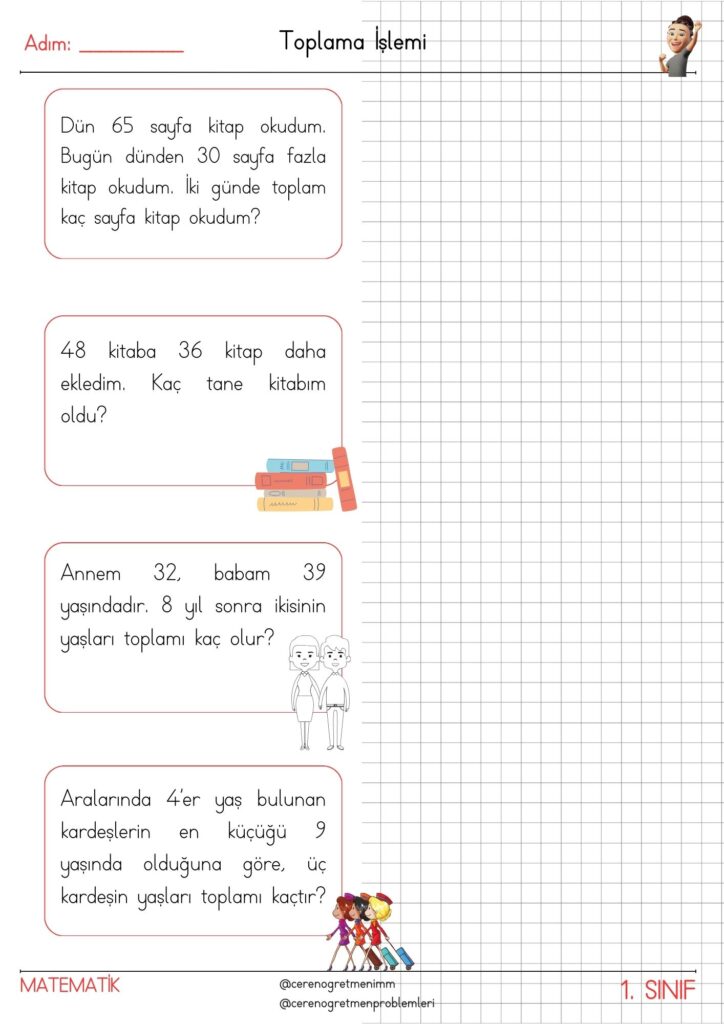 Adım: __________
Toplama İşlemi
Dün 65 sayfa kitap okudum.
Bugün dünden 30 sayfa fazla
kitap okudum. İki günde toplam
kaç sayfa kitap okudum?
48 kitaba 36 kitap daha
ekledim. Kaç tane kitabım
oldu?
Annem 32, babam 39
yaşındadır. 8 yıl sonra ikisinin
yaşları toplamı kaç olur?
Aralarında 4'er yaş bulunan
kardeşlerin en küçüğü 9
yaşında olduğuna göre, üç
kardeşin yaşları toplamı kaçtır?
MATEMATİK
@cerenogretmenimm
@cerenogretmenproblemleri
1. SINIF